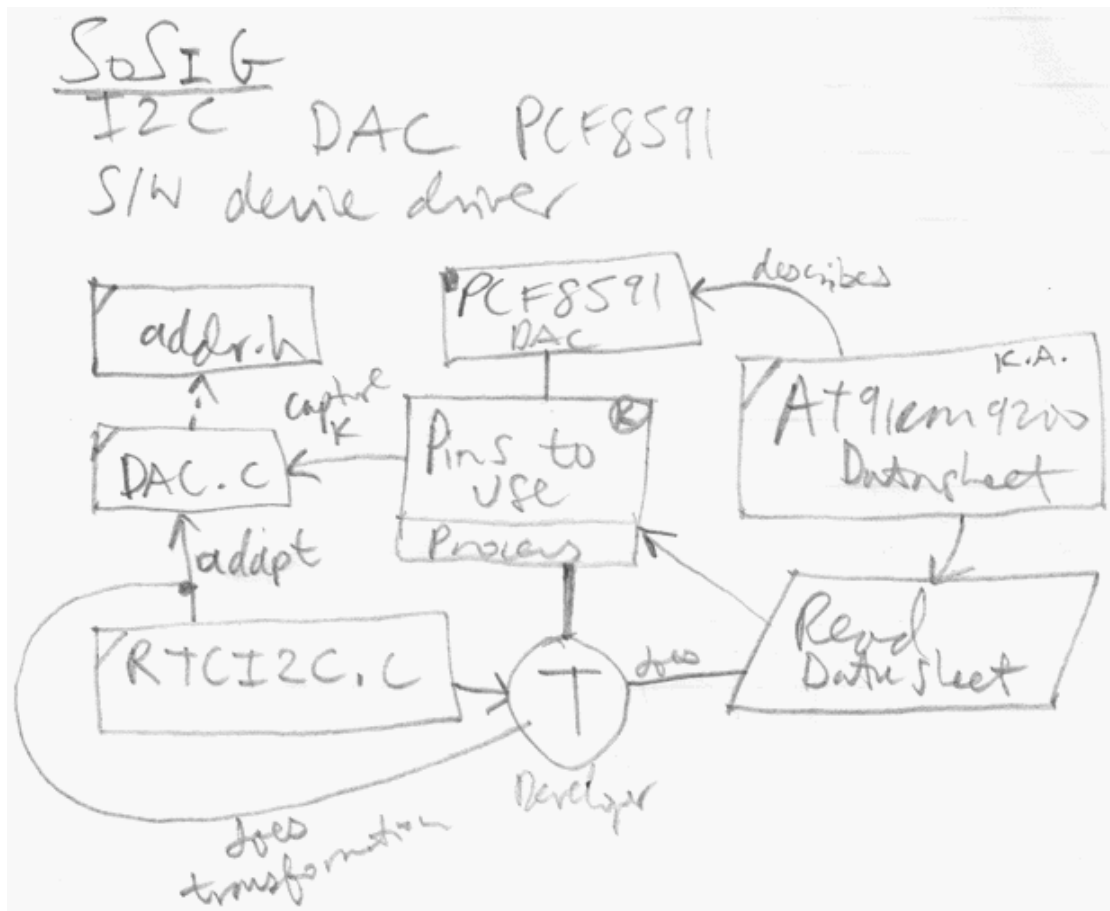 SoSIG
I2C DAC PCF8591
S/W device driver
describes
PCF8591
DAC
addr.h
K.A.
AT91RM9200
Datasheet
capture
K
R
Pins to
use
Process
DAC.C
adapt
RTCI2C.C
T
does
Read
Datasheet
Developer
does
transformation